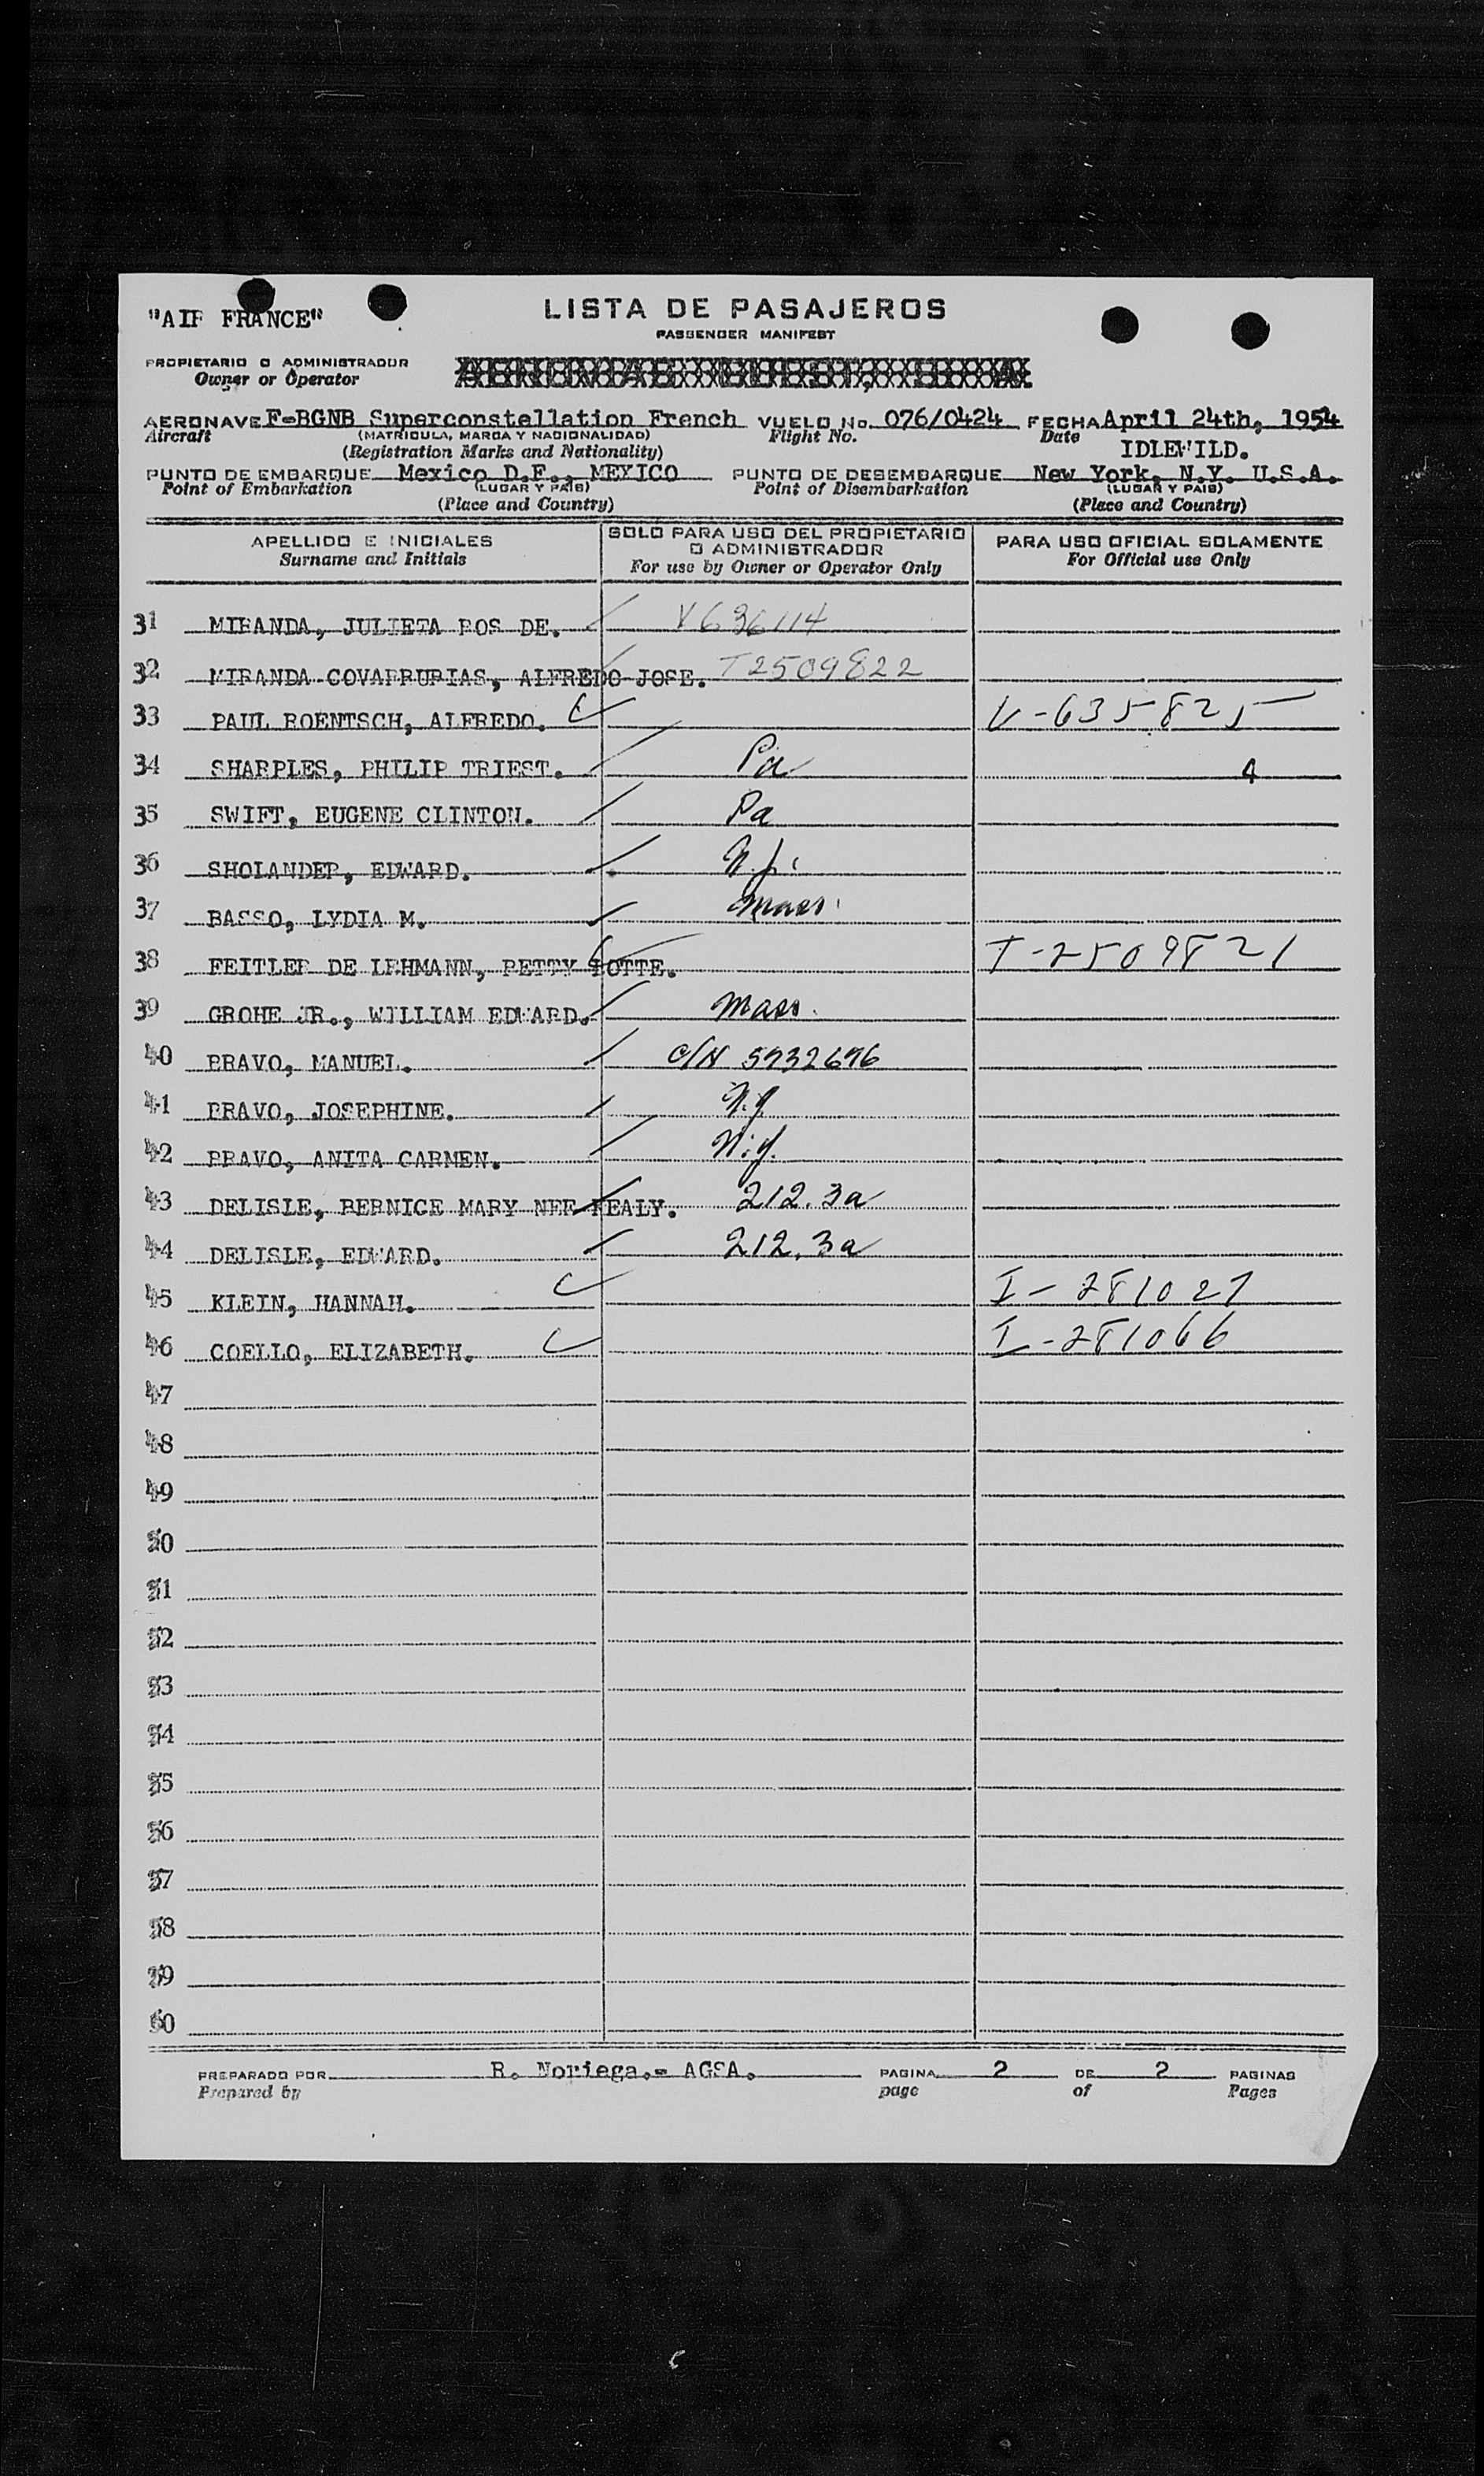 "AIR FRANCE"
LISTA DE PASAJEROS
PASSENGER MANIFEST
PROPIETARIO O ADMINISTRADOR
Owner or Operator
AERONAVE F-BGNB Superconstellation French VUELO No. 076/0424 FECHA April 24th, 1954
Aircraft (MATRICULA, MARCA Y NACIONALIDAD) Flight No. Date
(Registration Marks and Nationality) IDLEWILD.
PUNTO DE EMBARQUE Mexico D.F., MEXICO PUNTO DE DESEMBARQUE New York, N.Y. U.S.A.
Point of Embarkation (LUGAR Y PAIS) Point of Disembarkation (LUGAR Y PAIS)
(Place and Country) (Place and Country)
APELLIDO E INICIALES SOLO PARA USO DEL PROPIETARIO O ADMINISTRADOR PARA USO OFICIAL SOLAMENTE
Surname and Initials For use by Owner or Operator Only For Official use Only
31 MIRANDA, JULIETA ROS DE. V636114
32 MIRANDA COVARRUBIAS, ALFREDO JOSE. T2509822
33 PAUL ROENTSCH, ALFREDO. V-635825
34 SHARPLES, PHILIP TRIEST. Pa 4
35 SWIFT, EUGENE CLINTON. Pa
36 SHOLANDER, EDWARD.
37 BASSO, LYDIA M. Mass.
38 FEITLER DE LEHMANN, BETTY LOTTE. T-2509821
39 GROHE JR., WILLIAM EDWARD. Mass.
40 BRAVO, MANUEL. C/N 5932696
41 BRAVO, JOSEPHINE. N.Y.
42 BRAVO, ANITA CARMEN. N.Y.
43 DELISLE, BERNICE MARY NEE FEALY. 212.3a
44 DELISLE, EDWARD. 212.3a
45 KLEIN, HANNAH. I-281027
46 COELLO, ELIZABETH. I-281066
47
48
49
50
51
52
53
54
55
56
57
58
59
60
PREPARADO POR R. Noriega.- AGSA. PAGINA 2 DE 2 PAGINAS
Prepared by page of Pages